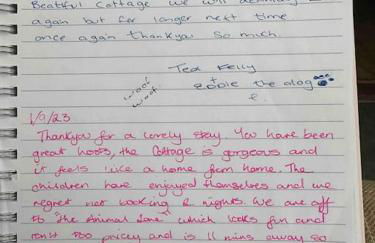 Beatiful Cottage we will
again but for longer next time
once again thankyou so much.
Ted Kelly
+ Eddie the dog
woof
woof
1/9/23
Thankyou for a lovely stay. You have been
great hosts, the Cottage is gorgeous and
it feels like a home from home. The
children have enjoyed themselves and we
regret not booking 2 nights. We are off
to "the Animal Farm" which looks fun and
isn't too pricey and is 11 mins away so